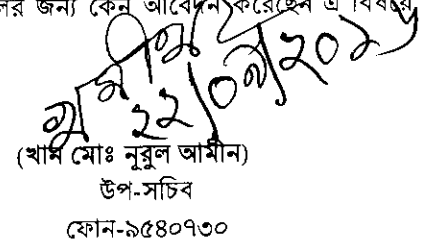 লর জন্য কেন আবেদন করেছেন এ বিষয়ে
২২/০৯/২০১৫
(খান মোঃ নূরুল আমীন)
উপ-সচিব
ফোন-৯৫৪০৭৩০